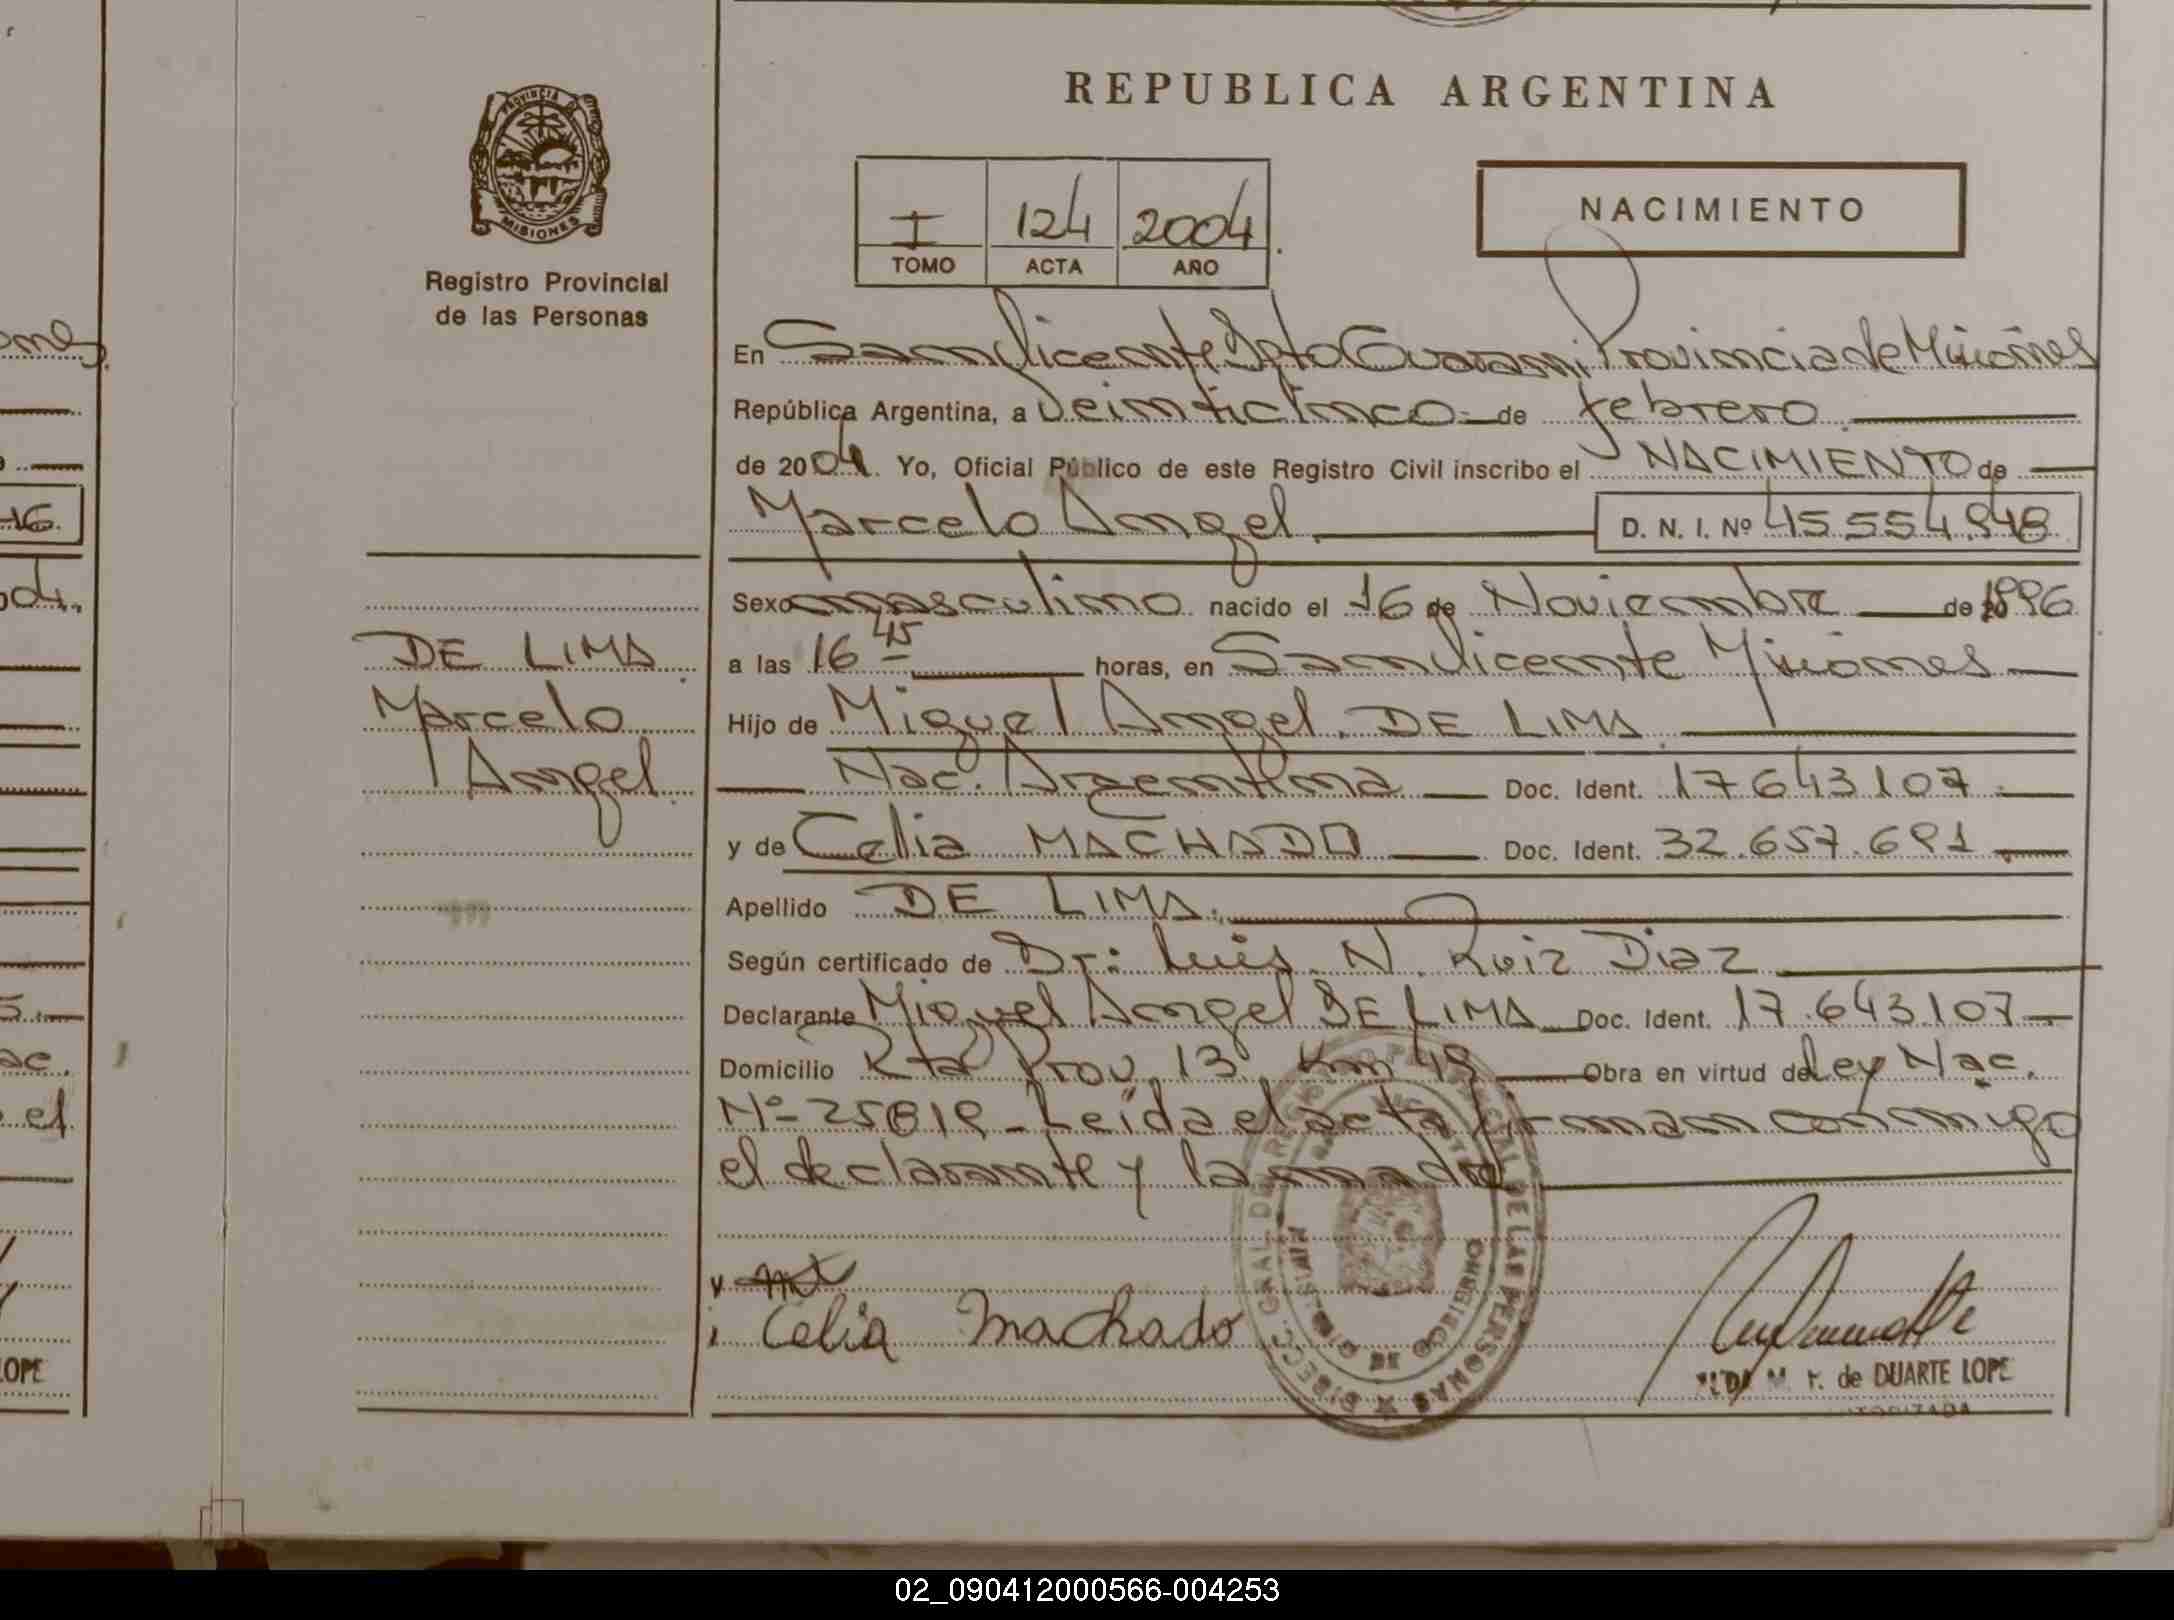 REPUBLICA ARGENTINA
PROVINCIA DE
MISIONES
Registro Provincial
de las Personas
I 124 2004
TOMO ACTA AÑO
NACIMIENTO
En San Vicente Dpto Guarani Provincia de Misiones
República Argentina, a veinticinco de febrero
de 2004. Yo, Oficial Público de este Registro Civil inscribo el NACIMIENTO de
Marcelo Angel D. N. I. Nº 45.554.948
Sexo masculino nacido el 16 de Noviembre de 1996
a las 16 45 horas, en San Vicente Misiones
Hijo de Miguel Angel DE LIMA
Nac. Argentina Doc. Ident. 17643107
y de Celia MACHADO Doc. Ident. 32.657.691
Apellido DE LIMA
Según certificado de Dr: Luis N. Ruiz Diaz
Declarante Miguel Angel DE LIMA Doc. Ident. 17.643.107
Domicilio Rta Prov. 13 Km 49 Obra en virtud de Ley Nac.
Nº 25819 - Leida el acta firman conmigo
el declarante y la madre
DE LIMA
Marcelo
Angel
Celia Machado
DIRECC. GRAL. DEL REGISTRO PROVINCIAL DE LAS PERSONAS
MINISTERIO DE GOBIERNO
de DUARTE LOPE
02_090412000566-004253